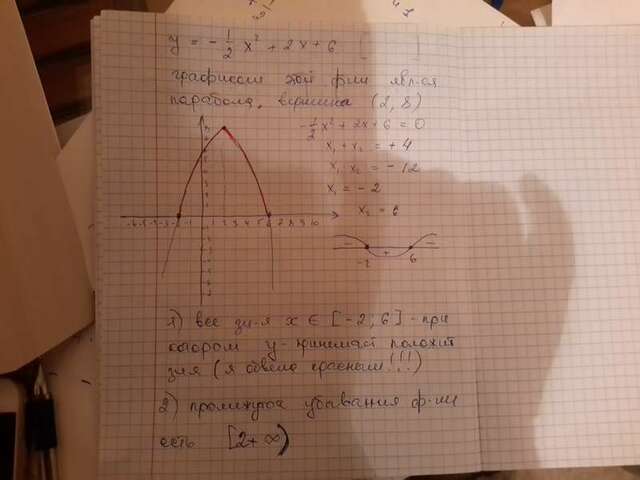 y = -1/2 x² + 2x + 6
графиком этой ф-ии явл-ся
парабола, вершина (2, 8)
-1/2 x² + 2x + 6 = 0
x₁ + x₂ = +4
x₁ x₂ = -12
x₁ = -2
x₂ = 6
- + -
-2 6
1) все зн-я x ∈ [-2; 6] - при
котором y - принимает полож
зн-я (я обвела красным!!!)
2) промежуток убывания ф-ии
есть [2 + ∞)